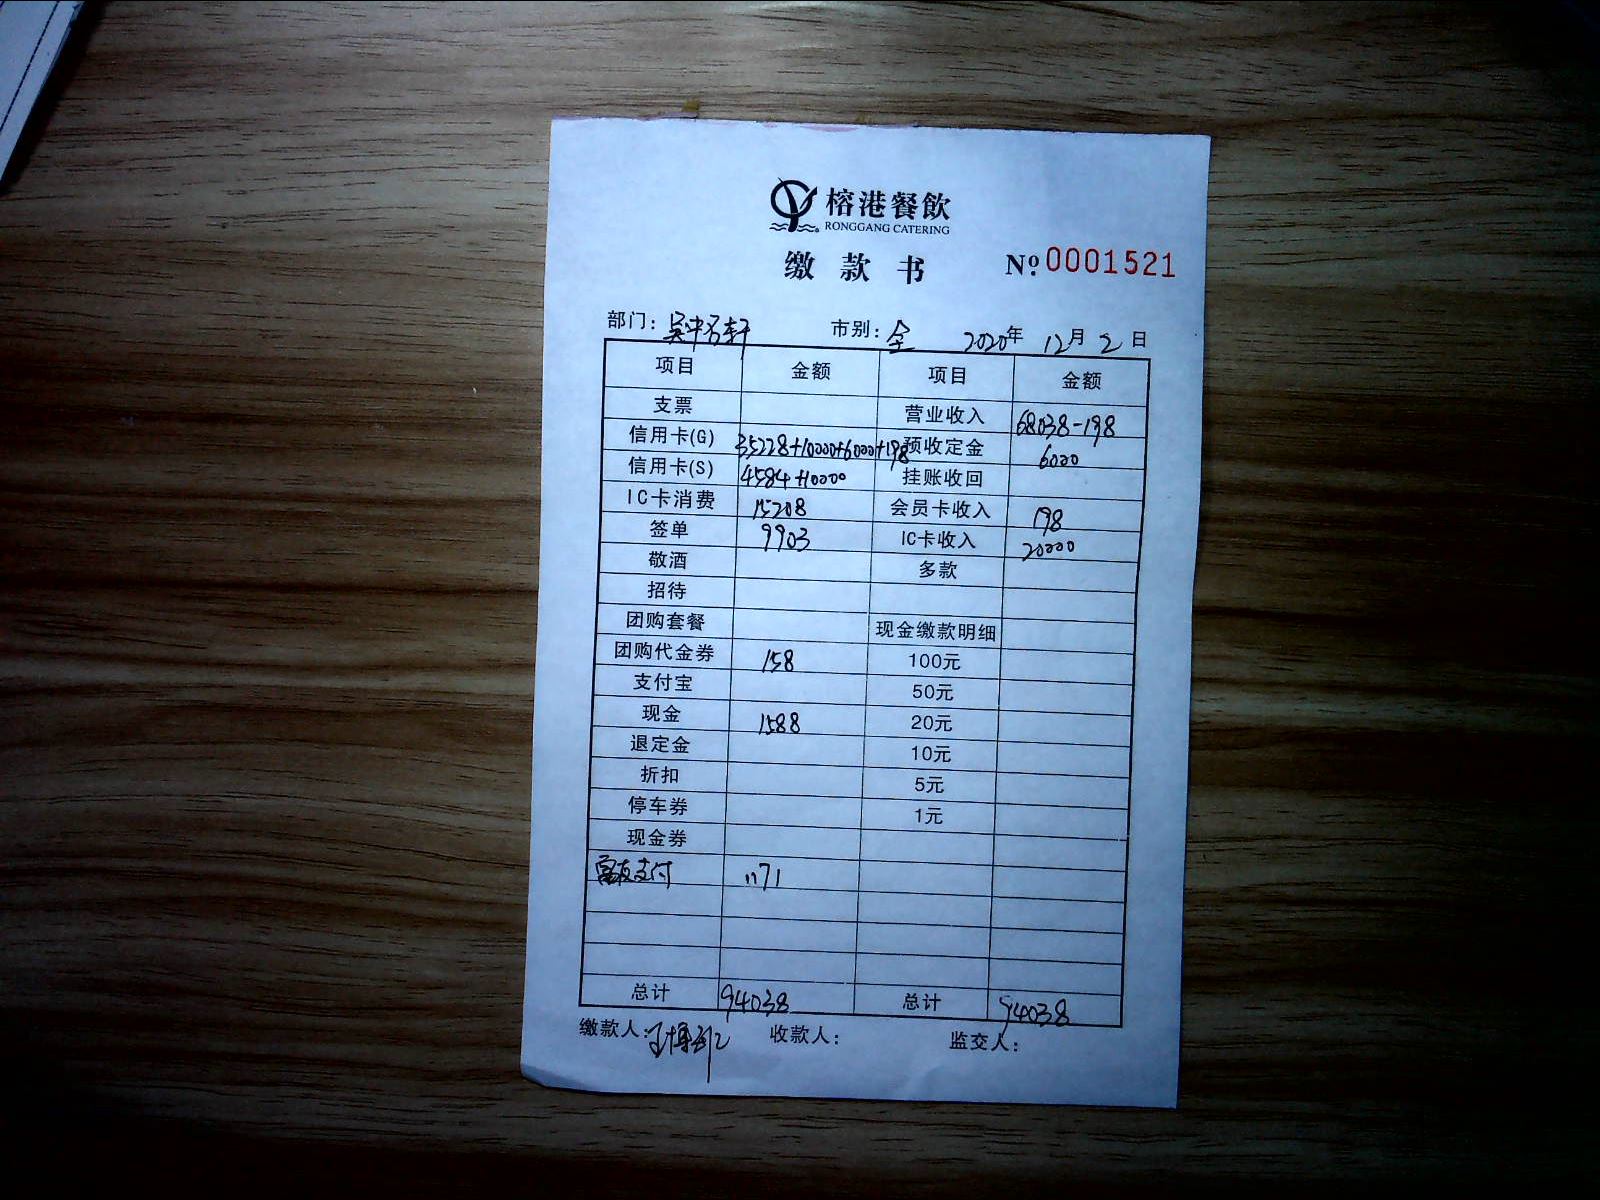 榕港餐飲
RONGGANG CATERING
缴款书 №0001521
部门: 吴中名轩 市别: 全 2020年 12月 2日
项目 金额 项目 金额
支票 营业收入 68038-198
信用卡(G) 35228+10000+6000+198 预收定金 6000
信用卡(S) 4584+10000 挂账收回
IC卡消费 15208 会员卡收入 198
签单 9903 IC卡收入 20000
敬酒 多款
招待
团购套餐 现金缴款明细
团购代金券 158 100元
支付宝 50元
现金 1588 20元
退定金 10元
折扣 5元
停车券 1元
现金券
富友支付 1171
总计 94038 总计 94038
缴款人: 收款人: 监交人: